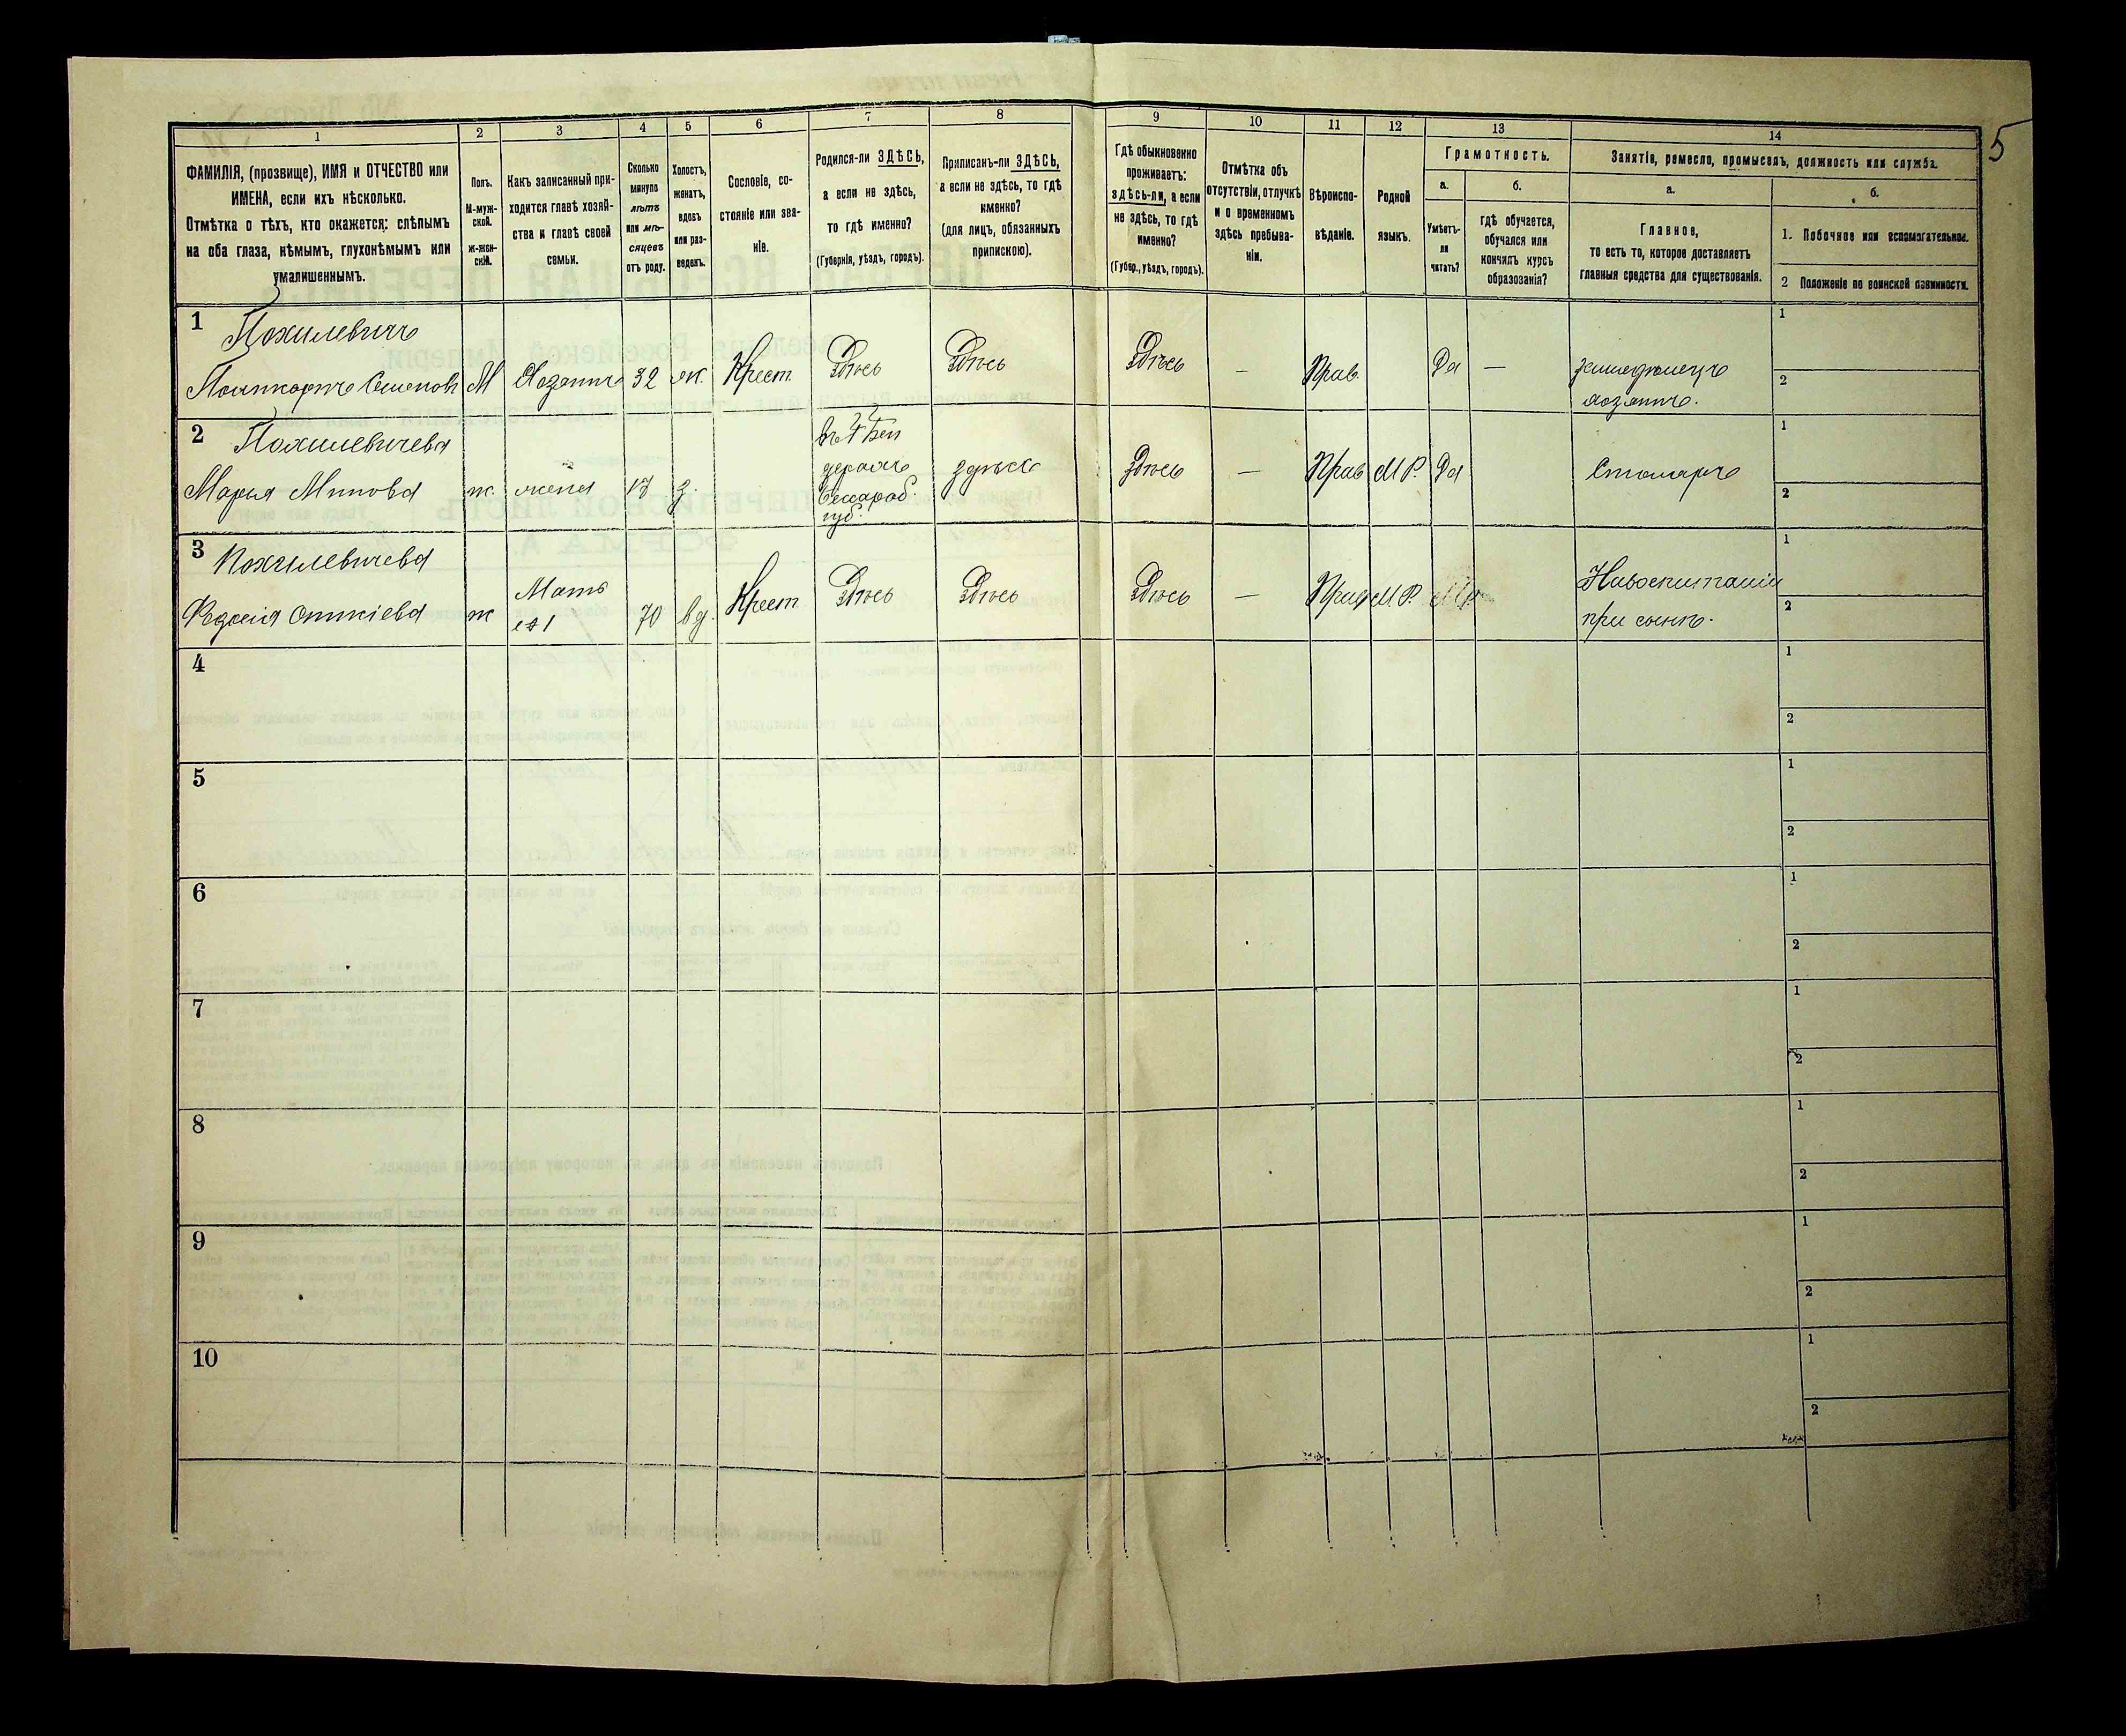 5
1
2
3
4
5
6
7
8
9
10
11
12
13
14
ФАМИЛІЯ, (прозвище), ИМЯ и ОТЧЕСТВО или
ИМЕНА, если ихъ нѣсколько.
Отмѣтка о тѣхъ, кто окажется: слѣпымъ
на оба глаза, нѣмымъ, глухонѣмымъ или
умалишеннымъ.
Полъ.
М-муж-
ской.
ж-жен-
скій.
Какъ записанный при-
ходится главѣ хозяй-
ства и главѣ своей
семьи.
Сколько
минуло
лѣтъ
или мѣ-
сяцевъ
отъ роду.
Холостъ,
женатъ,
вдовъ
или раз-
веденъ.
Сословіе, со-
стояніе или зва-
ніе.
Родился-ли ЗДѢСЬ,
а если не здѣсь,
то гдѣ именно?
(Губернія, уѣздъ, городъ).
Приписанъ-ли ЗДѢСЬ,
а если не здѣсь, то гдѣ
именно?
(для лицъ, обязанныхъ
припискою).
Гдѣ обыкновенно
проживаетъ:
здѣсь-ли, а если
не здѣсь, то гдѣ
именно?
(Губер., уѣздъ, городъ).
Отмѣтка объ
отсутствіи, отлучкѣ
и о временномъ
здѣсь пребыва-
ніи.
Вѣроиспо-
вѣданіе.
Родной
языкъ.
Грамотность.
а.
Умѣетъ-
ли
читать?
б.
гдѣ обучается,
обучался или
кончилъ курсъ
образованія?
Занятія, ремесло, промыселъ, должность или служба.
а.
Главное,
то есть то, которое доставляетъ
главныя средства для существованія.
б.
1. Побочное или вспомогательное.
2 Положеніе по воинской повинности.
1
Похилевичъ
Поликарпъ Семеновъ
М
Хозяинъ
32
ж.
Крест.
Здѣсь
Здѣсь
Здѣсь
—
Прав.
Да
—
земледѣлецъ
хозяинъ.
1
2
2
Похилевичева
Марія
ж.
жена
Бессараб.
губ.
здѣсь
Здѣсь
—
Прав
М.Р.
Да
Столяръ
1
2
3
Похилевичева
ж
Мать
70
вд.
Крест
Здѣсь
Здѣсь
Здѣсь
—
Прав
М.Р.
при сынѣ.
1
2
4
1
2
5
1
2
6
1
2
7
1
2
8
1
2
9
1
2
10
1
2